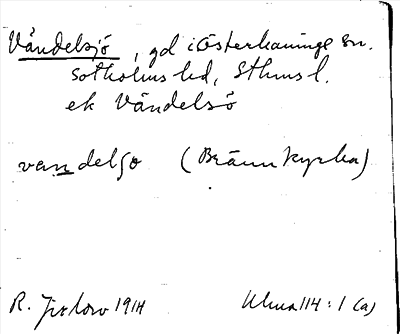 Vändelsjö, gd i Österhaninge sn.
Sotholms hd, Sthms l.
ek Vändelsö
vandelsjo (Brännkyrka)
R. 1914 114:1 (a)